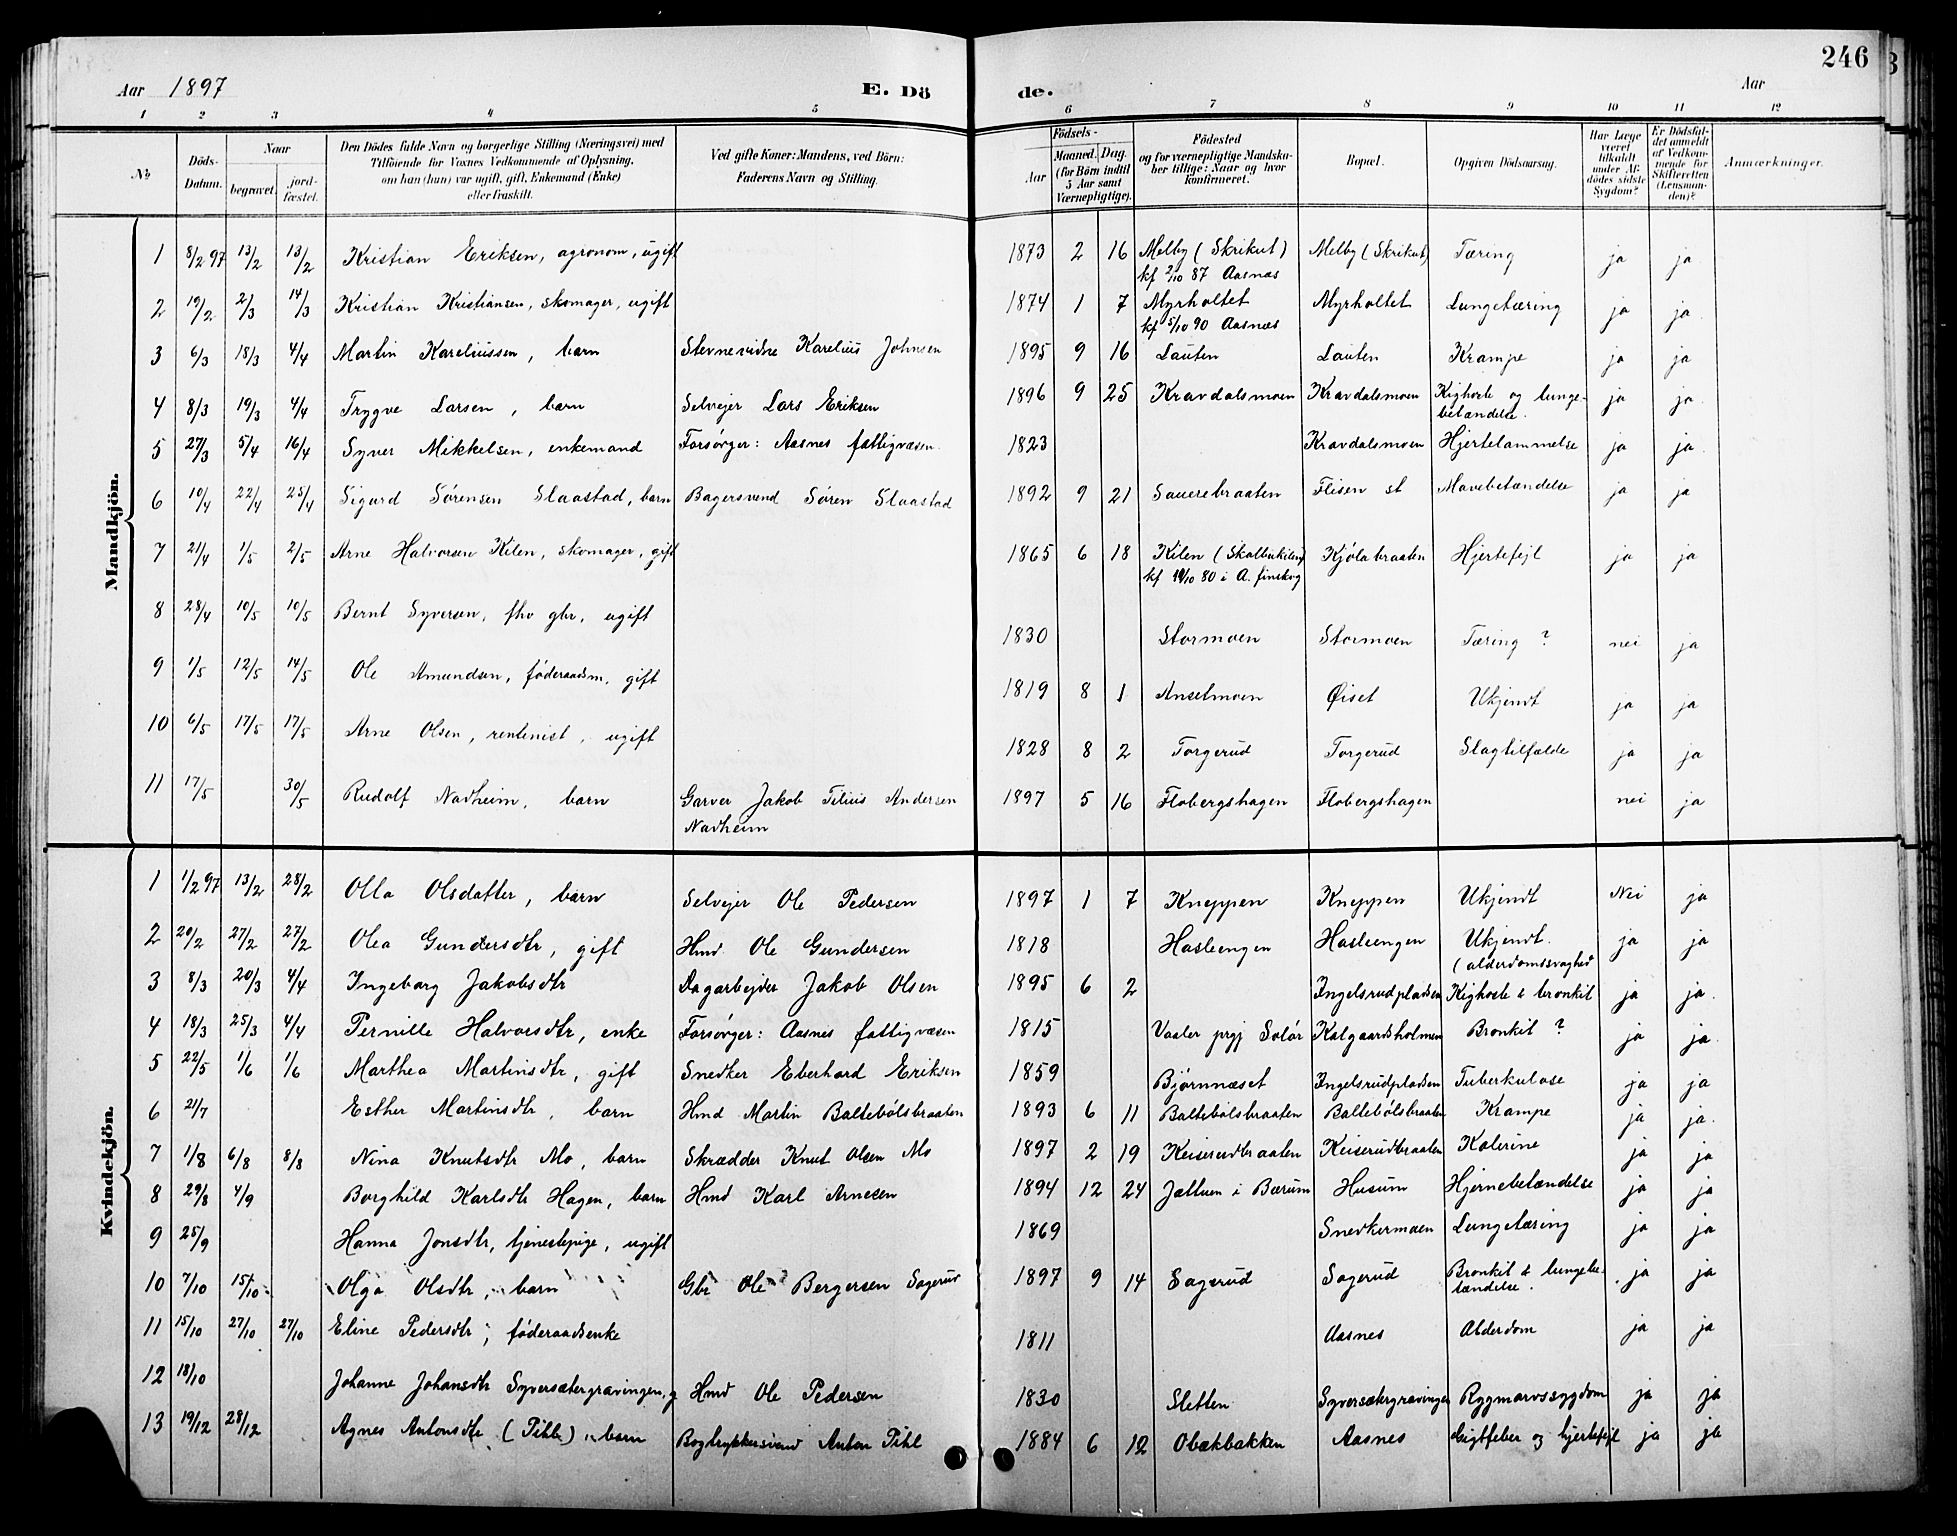 246
Aar 1897 E. Dö de. Aar
1 2 3 4 5 6 7 8 9 10 11 12
No Döds-Datum. Naar begravet. jordfæstet. Den Dödes fulde Navn og borgerlige Stilling (Næringsvei) med Tilföiende for Voxnes Vedkommende af Oplysning, om han (hun) var ugift, gift, Enkemand (Enke) eller fraskilt. Ved gifte Koner: Mandens, ved Börn: Faderens Navn og Stilling. Födsels- Aar Maaned. Dag. (for Börn indtil 5 Aar samt Værnepligtige). Födested og for værnepligtige Mandskaber tillige: Naar og hvor konfirmeret. Bopæl. Opgiven Dödsaarsag. Har Læge været tilkaldt under Afdödes sidste Sygdom? Er Dödsfaldet anmeldt af Vedkommende for Skifteretten (Lensmanden)? Anmærkninger.
Mandkjön.
1 8/2 97 13/2 13/2 Kristian Eriksen, agronom, ugift 1873 2 16 Melby (Skrikut) Melby (Skrikut) Tæring ja ja
kf 2/10 87 Aasnæs
2 19/2 2/3 14/3 Kristian Kristiansen, skomager, ugift 1874 1 7 Myrholtet Myrholtet Lungetæring ja ja
kf 5/10 90 Aasnæs
3 6/3 18/3 4/4 Martin Kareliussen, barn Stevnevidne Karelius Johnsen 1895 9 16 Lauten Lauten Krampe ja ja
4 8/3 19/3 4/4 Trygve Larsen, barn Selvejer Lars Eriksen 1896 9 25 Kravdalsmoen Kravdalsmoen Kighoste og lunge-
betændelse.
ja ja
5 27/3 5/4 16/4 Syver Mikkelsen, enkemand Forsørger: Aasnes fattigvæsen. 1823 Kravdalsmoen Hjertelammelse ja ja
6 10/4 22/4 25/4 Sigurd Sørensen Slaastad, barn Bagersvend Søren Slaastad 1892 9 21 Sauerebraaten Flisen st Mavebetændelse ja ja
7 21/4 1/5 2/5 Arne Halvorsen Kilen, skomager, gift 1865 6 18 Kilen (Skalbukilen) Kjølabraaten Hjertefejl ja ja
kf 10/10 80 i A. finskog
8 28/4 10/5 10/5 Bernt Syversen, fhv gbr, ugift 1830 Stormoen Stormoen Tæring ? nei ja
9 1/5 12/5 14/5 Ole Amundsen, føderaadsm, gift 1819 8 1 Anselmoen Øiset Ukjendt ja ja
10 6/5 17/5 17/5 Arne Olsen, rentenist, ugift 1828 8 2 Torgerud Torgerud Slagtilfælde ja ja
11 17/5 30/5 Rudolf Nadheim, barn Garver Jakob Tilius Andersen 1897 5 16 Flobergshagen Flobergshagen nei ja
Nadheim
Kvindekjön.
1 1/2 97 13/2 28/2 Olla Olsdatter, barn Selvejer Ole Pedersen 1897 1 7 Kneppen Kneppen Ukjendt Nei ja
2 20/2 27/2 27/2 Olea Gundersdtr, gift Hmd. Ole Gundersen 1818 Hasleengen Hasleengen Ukjendt. ja ja
(alderdomssvaghed
3 8/3 20/3 4/4 Ingeborg Jakobsdtr Dagarbejder Jakob Olsen 1895 6 2 Ingelsrudpladsen Kighoste & bronkit ja ja.
4 18/3 25/3 4/4 Pernille Halvorsdtr, enke Forsørger: Aasnes fattigvæsen 1815 Vaaler prgj Solør Kalgaardsholmen Bronkit ? ja ja
5 22/5 1/6 1/6 Marthea Martinsdtr, gift Snedker Eberhard Eriksen 1859 Bjørnnæset Ingelsrudpladsen Tuberkulose ja ja
6 21/7 Esther Martinsdtr, barn Hmd Martin Baltebølsbraaten 1893 6 11 Baltebølsbraaten Baltebølsbraaten Krampe ja ja.
7 1/8 6/8 8/8 Nina Knutsdtr Mo, barn Skrædder Knut Olsen Mo 1897 2 19 Keiserudbraaten Keiserudbraaten Kolerine ja ja
8 29/8 4/9 Borghild Karlsdtr Hagen, barn Hmd Karl Arnesen 1894 12 24 Jættuen i Bærum Husum Hjernebetændelse ja ja
9 25/9 Hanna Jonsdtr, tjenestepige, ugift 1869 Snedkermoen Lungetæring ja ja
10 7/10 15/10 Olga Olsdtr, barn Gbr Ole Bergersen Sagerud 1897 9 14 Sagerud Sagerud Bronkit & lungebe-
tændelse.
ja ja
11 15/10 27/10 27/10 Eline Pedersdtr, føderaadsenke 1811 Aasnes Alderdom ja ja
12 18/10 Johanne Johansdtr Syversætergravingen, g Hmd Ole Pedersen 1830 Sletten Syversætergravingen Rygmarvssygdom ja ja
13 19/12 28/12 Agnes Antonsdtr (Pihl), barn Bogtrykkersvend Anton Pihl 1884 6 12 Obækbakken Aasnes Gigtfeber og hjertefejl ja ja